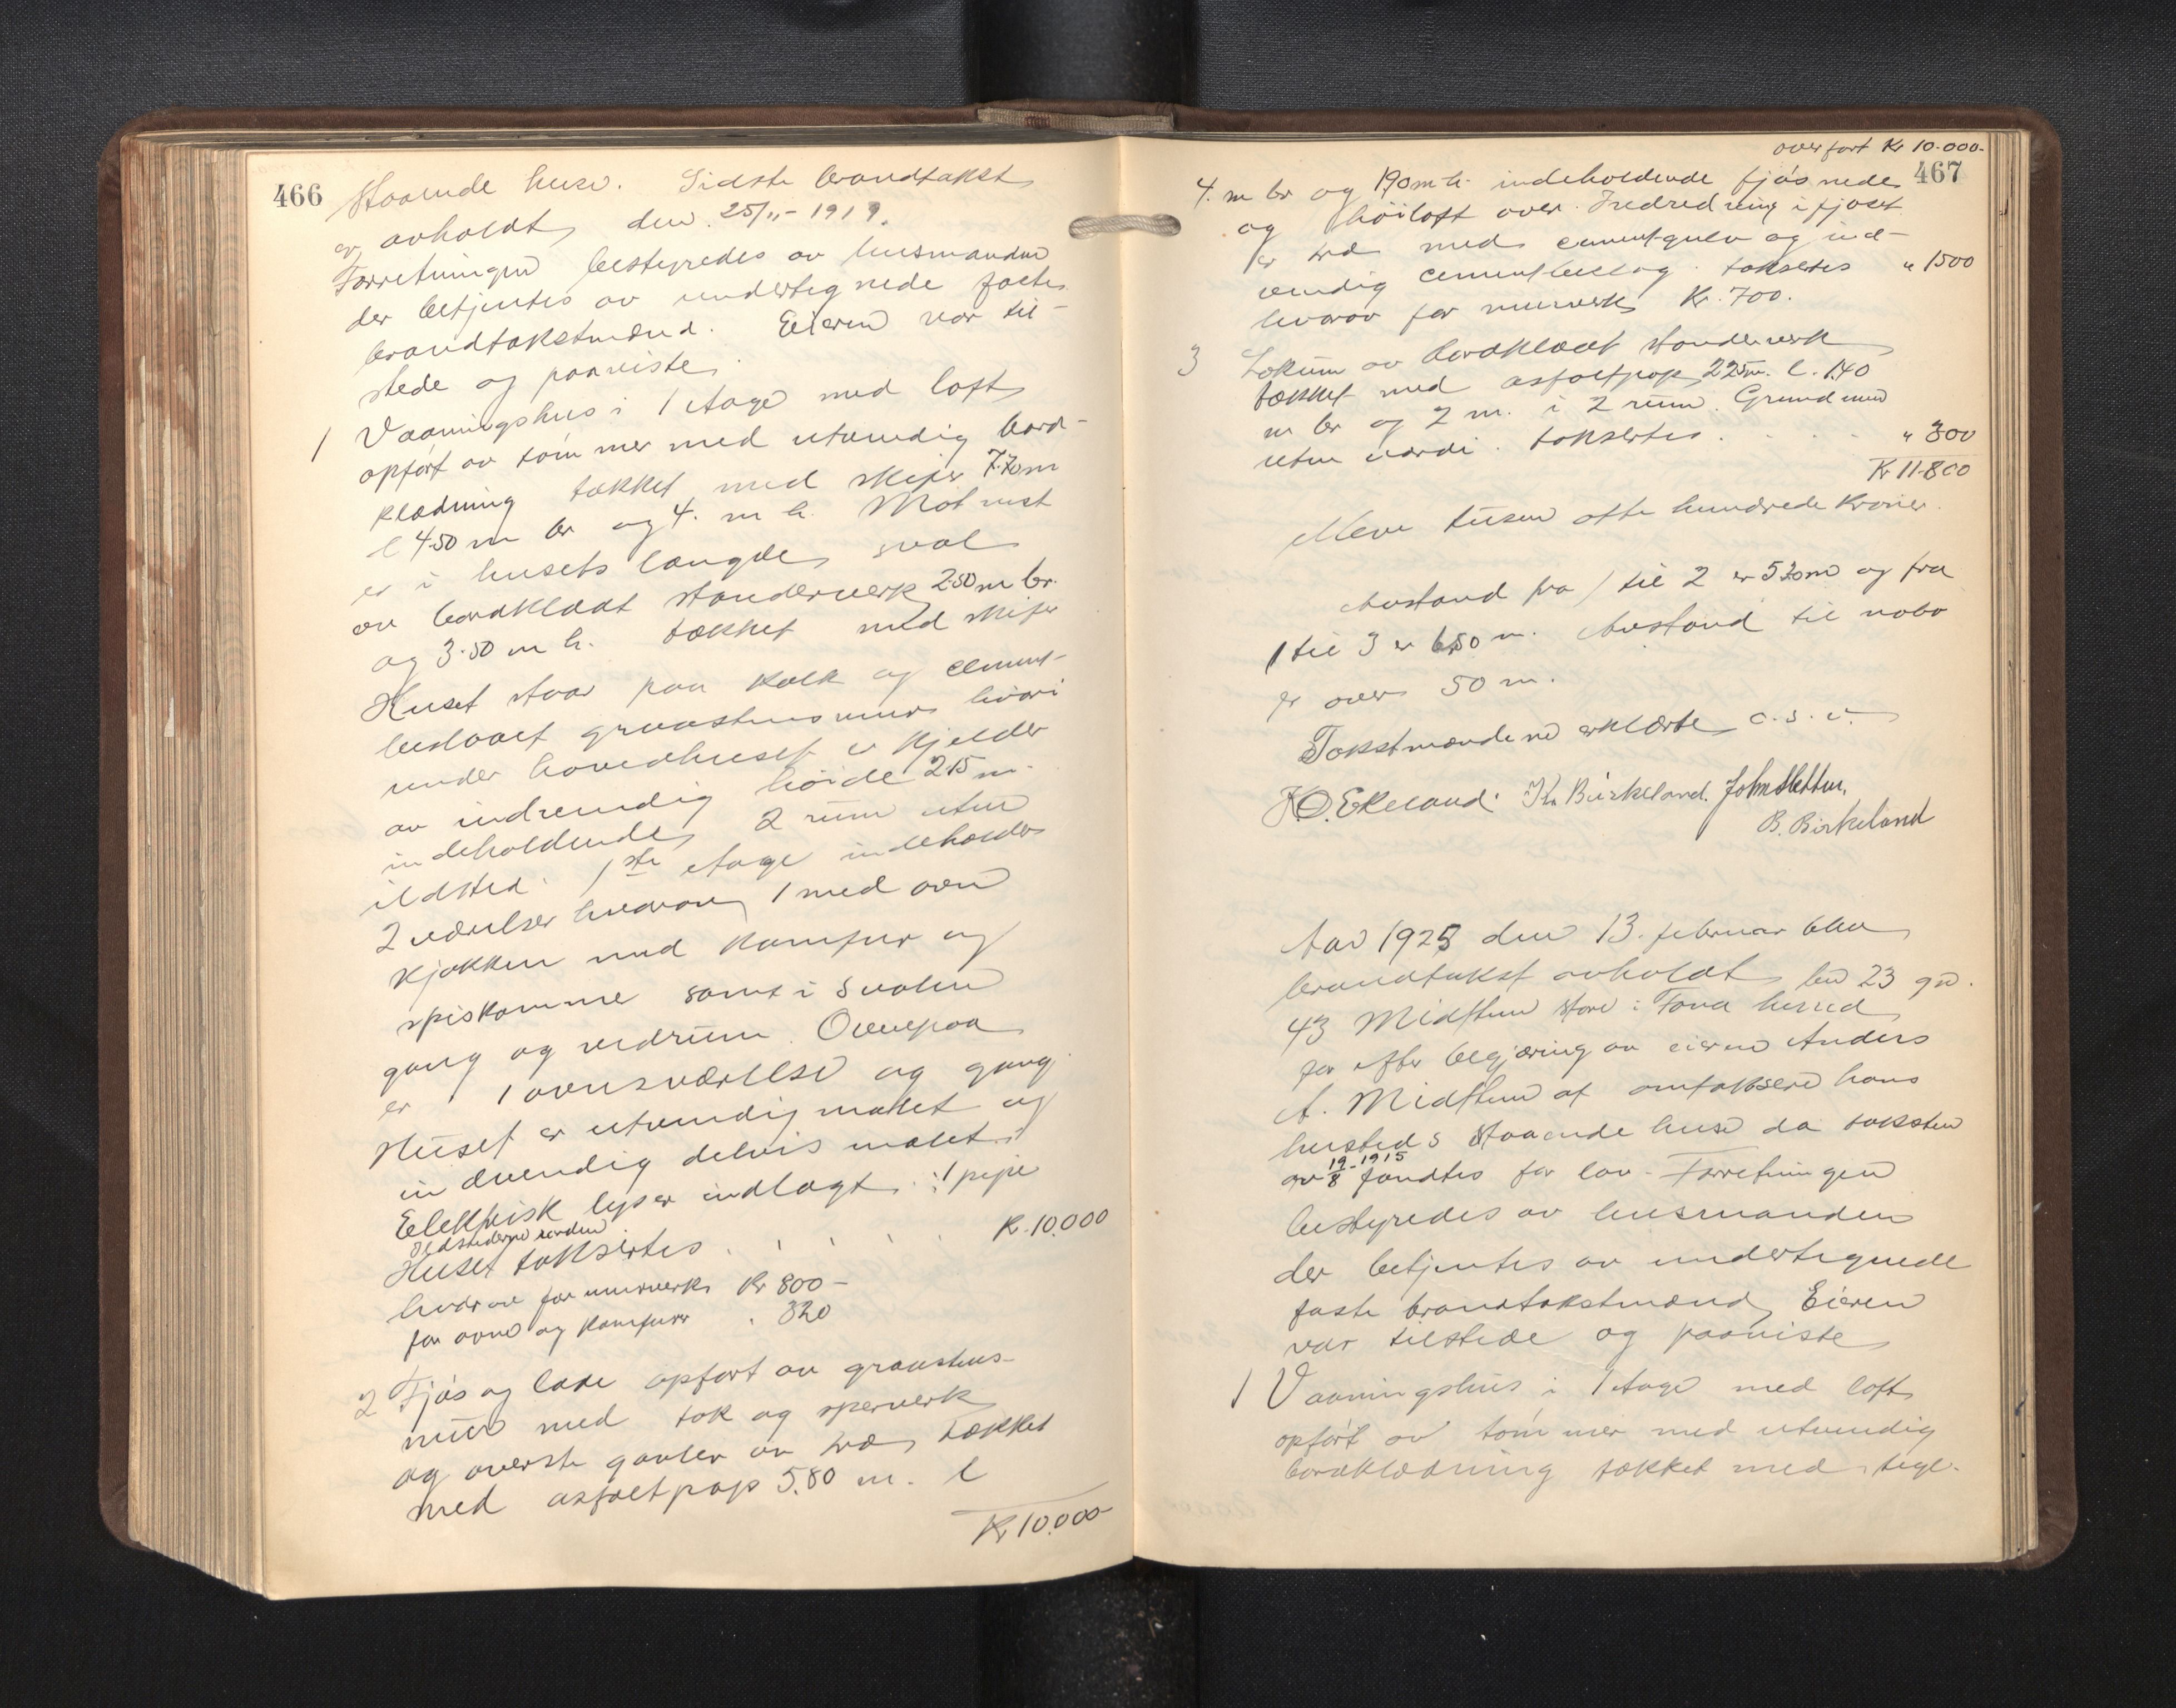 466
Staaende huse. Sidste brandtakst
er avholdt den 25/11-1919.
Forretningen bestyredes av lensmanden
der betjentes av undertegnede faste
brandtakstmænd. Eieren var til-
stede og paaviste
1 Vaaningshus i 1 Etage med loft
opført av tømmer med utvendig bord-
klædning tækket med skifer 7.70 m
l 4.50 m br og 4. m h. Mot vest
er i husets længde sval
av bordklædt standerverk 2.50 m br.
og 3.50 m h. tækket med skifer
Huset staar paa kalk og cement-
beslaaet graastensmur hvori
under hovedhuset er kjelder
av indvendig høide 2.15 m.
indeholdende 2 rum uten
ildsted. 1ste Etage indeholder
2 værelser hvorav 1 med ovn
kjøkken med komfur og
spiskammer samt i svalen
gang og vedrum. Ovenpaa
er 1 ovnsværelse og gang
Huset er utvendig malet og
indvendig delvis malet.
Elektrisk lys er indlagt. 1 pipe
Ildstederne
Huset takseres . . . . . Kr. 10.000
hvorav for murverk Kr 800-
for ovne og komfurer . 320
2 Fjøs og lade opført av graastens-
mur med tak og sperverk
og øverste gavler av træ, tækket
med asfaltpap 5.80 m. l
Kr 10.000-
overført Kr 10.000-
467
4. m br og 1.90 m h. indeholdende fjøs nede
og høiloft over. Indredning i fjøset
er træ med cementgulv og ind-
vendig cementbeslag. takseres " 1500
hvorav for murverk Kr. 700.
3 Lokum av bordklædt standerverk
tækket med asfaltpap 2.25 m. l. 1.40
m br og 2 m. i 2 rum. Grundmur
uten værdi. takseres . . . . " 300
Kr 11.800
Elleve tusen otte hundrede Kroner.
Avstand fra 1 til 2 er 5.20 m og fra
1 til 3 er 6.50 m. Avstand til nabo
er over 50 m.
Takstmændene erklærte o.s.v.
K.O. Ekeland. Kr. Birkeland. John Sletten.
B. Birkeland
Aar 1925 den 13. februar blev
brandtakst avholdt bno 23 gno.
43 Midttun store i Fana herred
for efter begjæring av eieren Anders
A. Midttun at omtaksere hans
hersteds staaende huse da taksten
av 19/8-1915 fandtes for lav. Forretningen
bestyredes av lensmanden
der betjentes av undertegnede
faste brandtakstmænd. Eieren
var tilstede og paaviste
1 Vaaningshus i 1 Etage med loft
opført av tømmer med utvendig
bordklædning tækket med tegl-